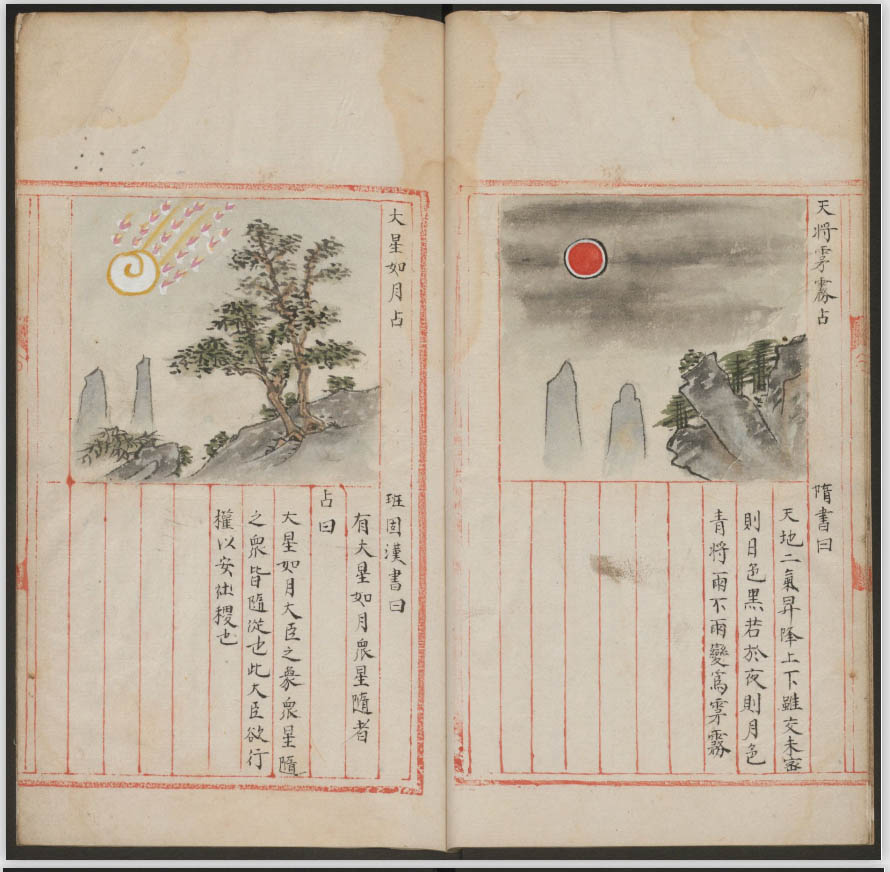 天將雺霧占
隋書曰
天地二氣昇降上下雖交未密
則日色黑若於夜則月色
青將雨不雨變爲雺霧
大星如月占
班固漢書曰
有夫星如月衆星隨者
占曰
大星如月大臣之象衆星隨
之衆皆隨從也此大臣欲行
權以安社稷也